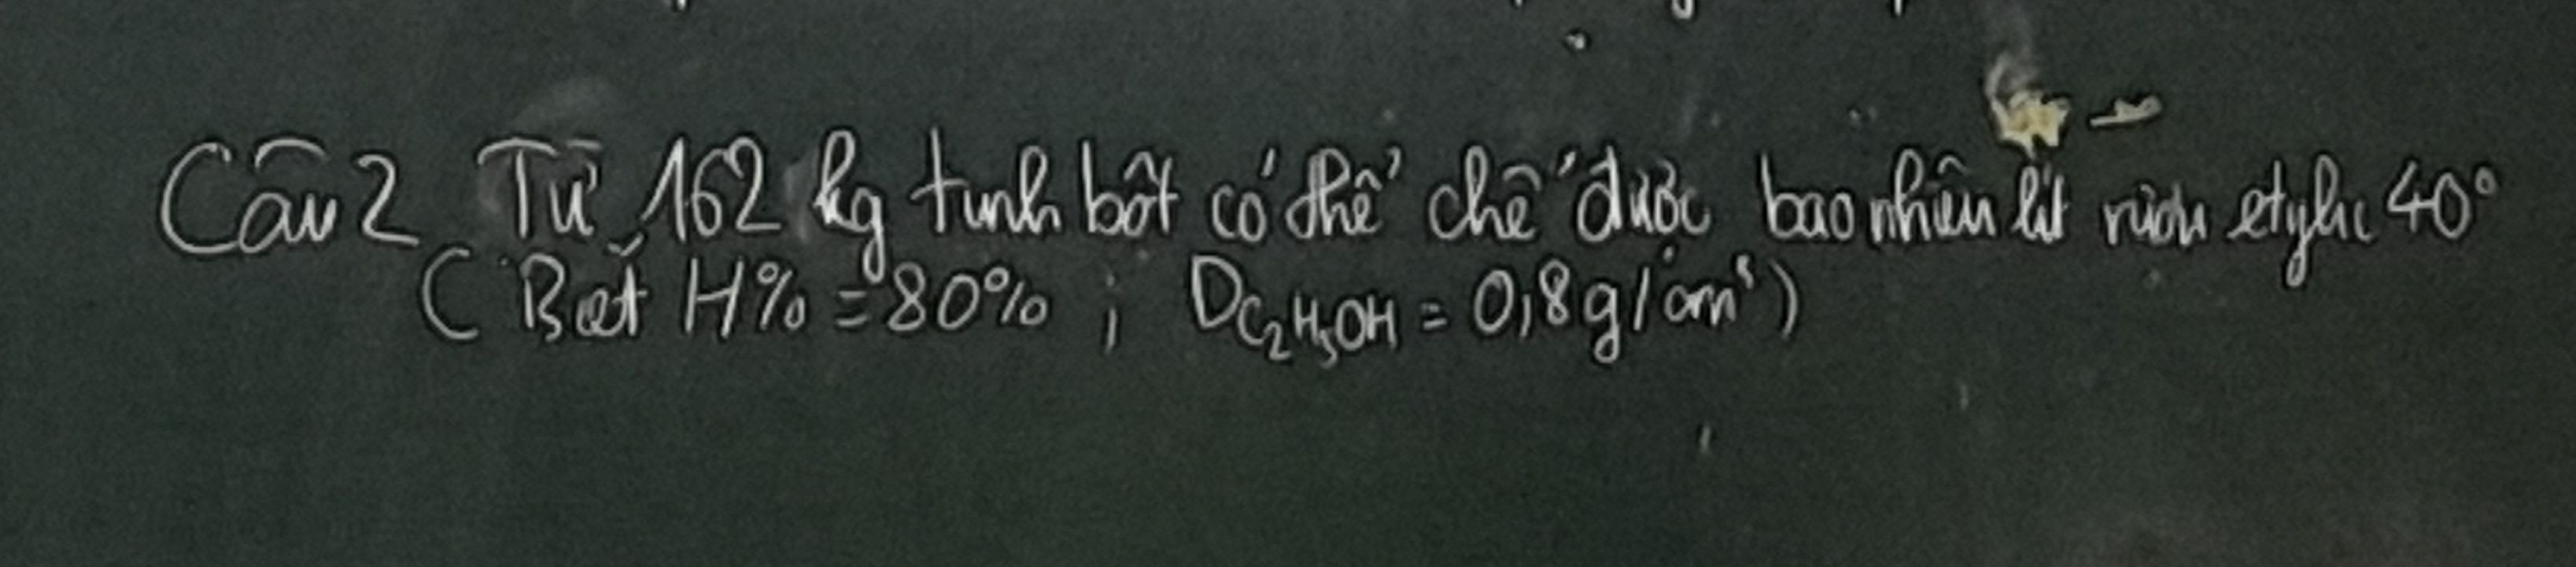 Câu 2 Từ 162 kg tinh bột có thể chế được bao nhiêu lít rượu etylic 40°
( Biết H% = 80% ; D C₂H₅OH = 0,8g/cm³)